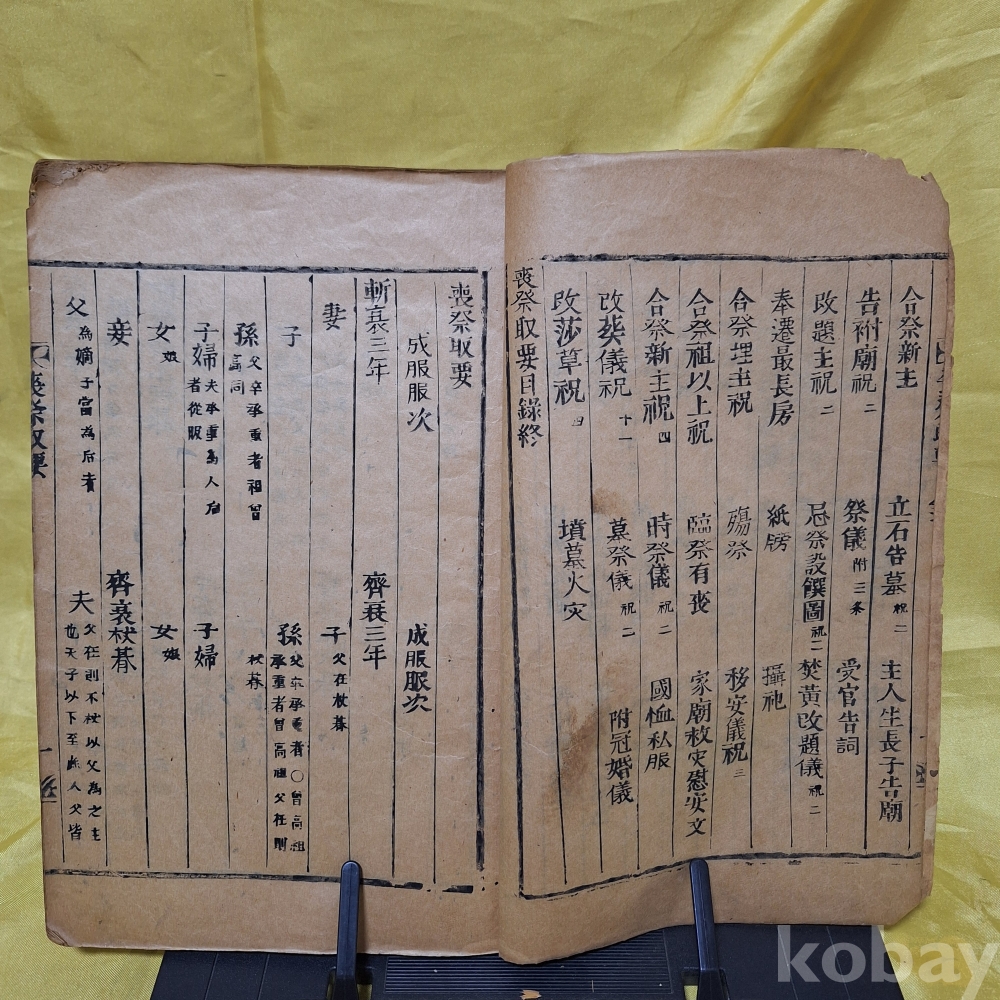 合祭新主 立石告墓 祝二 主人生長子告廟
告祔廟祝 二 祭儀 附三条 受官告詞
改題主祝 二 忌祭設饌圖 祝二 焚黃改題儀 祝二
奉遷最長房 紙牓 攝祀
合祭埋主祝 殤祭 移安儀祝 三
合祭祖以上祝 臨祭有喪 家廟救灾慰安文
合祭新主祝 四 時祭儀 祝二 國恤私服
改葬儀祝 十一 墓祭儀 祝二 附冠婚儀
改莎草祝 四 墳墓火灾
喪祭取要目錄終
喪祭取要
成服服次 成服服次
斬衰三年 齊衰三年
妻 子 父在杖朞
子 孫 父卒承重者○曾高祖
承重者曾高祖父在則
杖朞
孫 父卒承重者祖曾
高同
子婦 夫承重為人后
者從服 子婦
女 女
妾 齊衰杖朞
父 為嫡子當為后者 夫 父在則不杖以父為之主
也天子以下至庶人父皆
喪祭取要 一
kobay